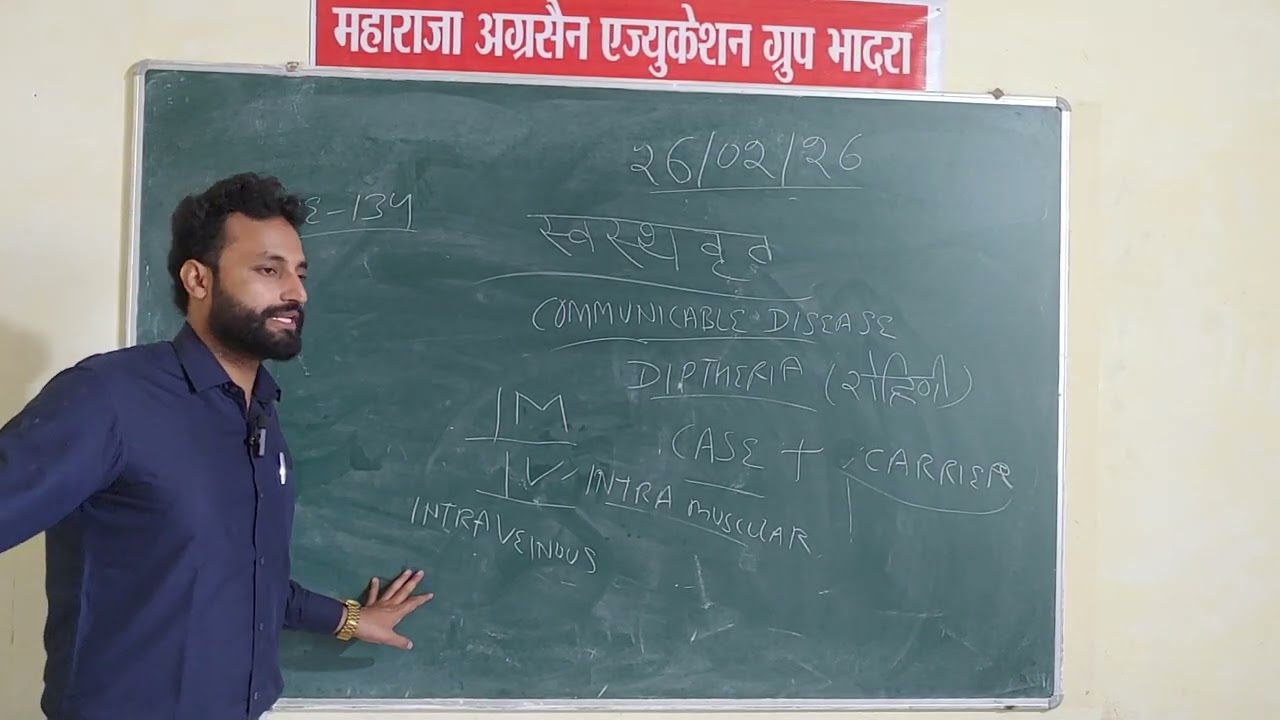 महाराजा अग्रसैन एज्युकेशन ग्रुप भादरा
26/02/26
-134
स्वस्थवृत
COMMUNICABLE DISEASE
DIPTHERIA (रोहिणी)
IM
CASE + CARRIER
IV - INTRA MUSCULAR
INTRAVEINOUS